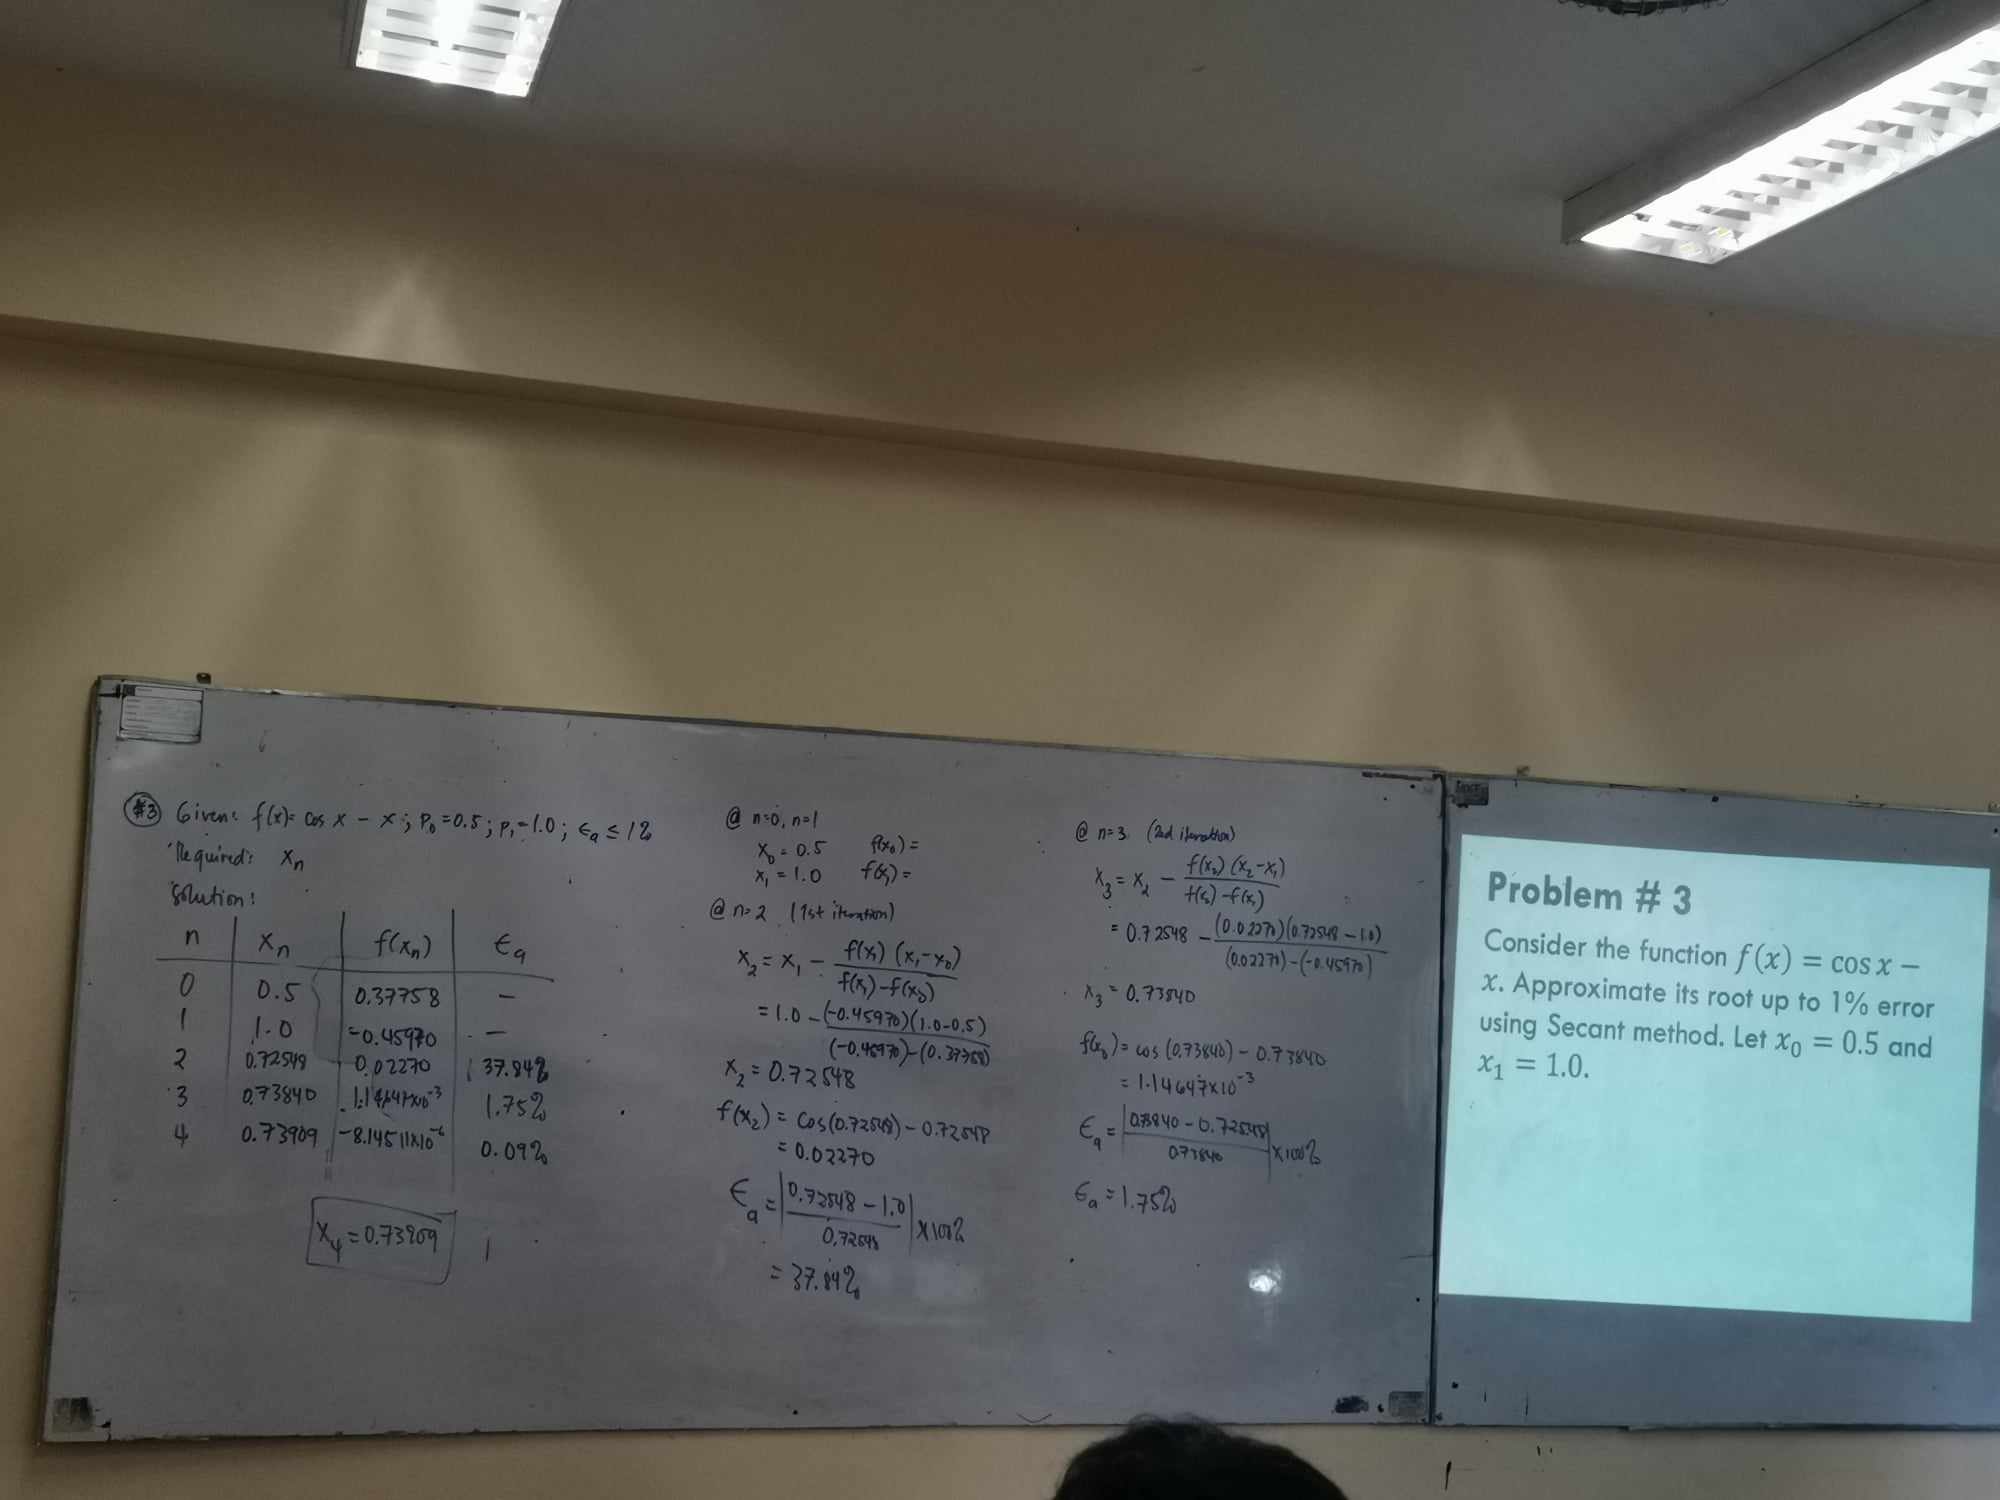 #3 Given: f(x) = cos x - x; P₀ = 0.5; P₁ = 1.0; ϵₐ ≤ 1%
Required: xₙ
Solution:
n | xₙ | f(xₙ) | ϵₐ
0 | 0.5 | 0.37758 | —
1 | 1.0 | -0.45970 | —
2 | 0.72548 | 0.02270 | 37.84%
3 | 0.73840 | 1.14647x10⁻³ | 1.75%
4 | 0.73909 | -8.14511x10⁻⁶ | 0.09%
x₄ = 0.73909
@ n=0, n=1
x₀ = 0.5 f(x₀) =
x₁ = 1.0 f(x₁) =
@ n=2 (1st iteration)
x₂ = x₁ - f(x₁)(x₁-x₀) / f(x₁)-f(x₀)
= 1.0 - (-0.45970)(1.0-0.5) / (-0.45970)-(0.37758)
x₂ = 0.72548
f(x₂) = cos(0.72548) - 0.72548
= 0.02270
ϵₐ = |0.72548 - 1.0 / 0.72548| x 100%
= 37.84%
@ n=3 (2nd iteration)
x₃ = x₂ - f(x₂)(x₂-x₁) / f(x₂)-f(x₁)
= 0.72548 - (0.02270)(0.72548-1.0) / (0.02270)-(-0.45970)
x₃ = 0.73840
f(x₃) = cos(0.73840) - 0.73840
= 1.14647x10⁻³
ϵₐ = |0.73840 - 0.72548 / 0.73840| x 100%
ϵₐ = 1.75%
Problem # 3
Consider the function f(x) = cos x −
x. Approximate its root up to 1% error
using Secant method. Let x₀ = 0.5 and
x₁ = 1.0.